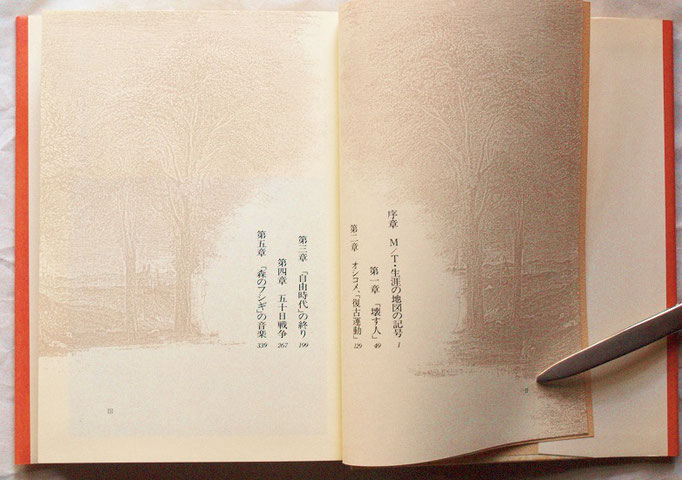 序章 M/T・生涯の地図の記号 1
第一章 「壊す人」 49
第二章 オシコメ、「復古運動」 129
第三章 「自由時代」の終り 199
第四章 五十日戦争 267
第五章 「森のフシギ」の音楽 339
III